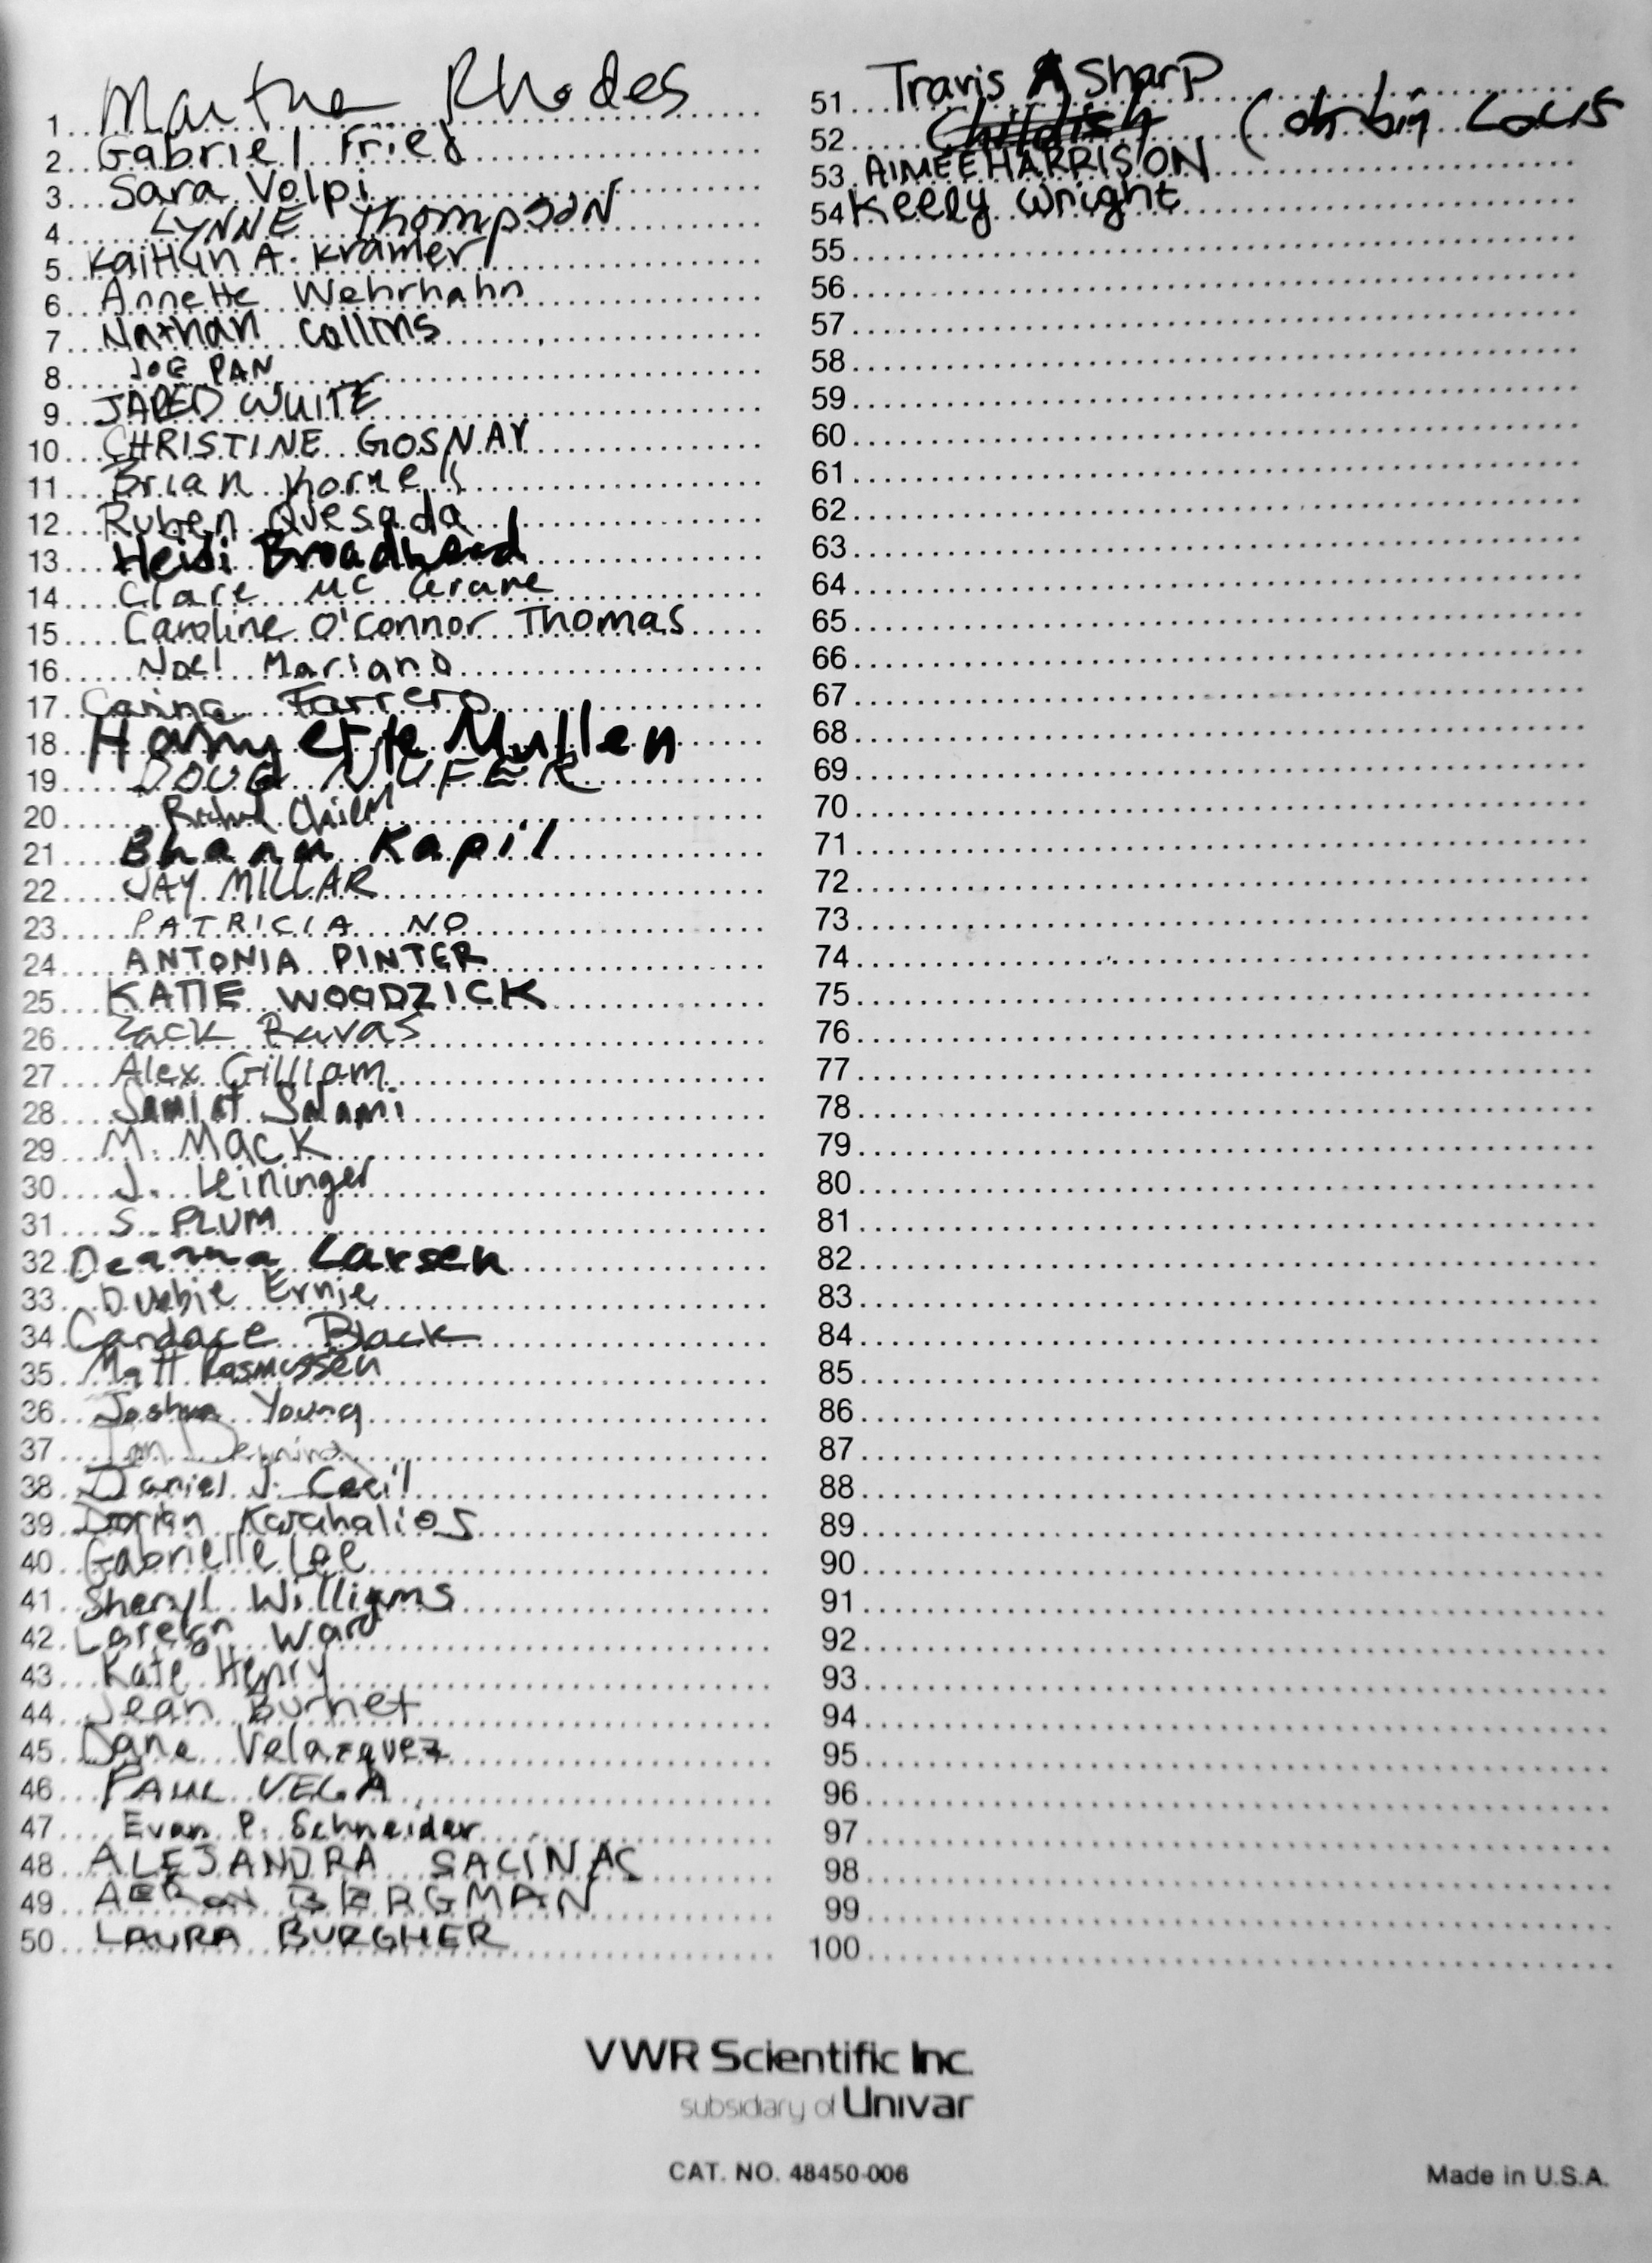 1 Martha Rhodes
2 Gabriel Fried
3 Sara Volpi
4 LYNNE Thompson
5 Kaitlyn A. Kramer
6 Annette Wehrhahn
7 Nathan Collins
8 JOE PAN
9 JARED WHITE
10 CHRISTINE GOSNAY
11 Brian Kornell
12 Ruben Quesada
13 Heidi Broadhead
14 Clare Mc Crane
15 Caroline O'Connor Thomas
16 Noel Mariano
17 Carina Farrero
18 Harry ette Mullen
19 DOUG NUFER
20
21 Bhanu Kapil
22 JAY MILLAR
23 PATRICIA NO
24 ANTONIA PINTER
25 KATIE WOODZICK
26 Zack Ravas
27 Alex Gilliam
28 Samiat Salami
29 M. Mack
30 J. Leininger
31 S. PLUM
32 Deanna Larsen
33 Ernie
34 Candace Black
35 Matt Rasmussen
36 Joshua Young
37 Ian
38 Daniel J. Cecil
39 Dorian Karahalios
40 Gabrielle Lee
41 Sheryl Williams
42 Ward
43 Kate Henry
44 Jean Burnet
45 Dane Velazquez
46 PAUL VEGA
47 Evan P. Schneider
48 ALEJANDRA SALINAS
49 AERON BERGMAN
50 LAURA BURGHER
51 Travis A Sharp
52 Childish
53 AIMEE HARRISON
54 Keely Wright
55
56
57
58
59
60
61
62
63
64
65
66
67
68
69
70
71
72
73
74
75
76
77
78
79
80
81
82
83
84
85
86
87
88
89
90
91
92
93
94
95
96
97
98
99
100
VWR Scientific Inc.
subsidiary of Univar
CAT. NO. 48450-006
Made in U.S.A.